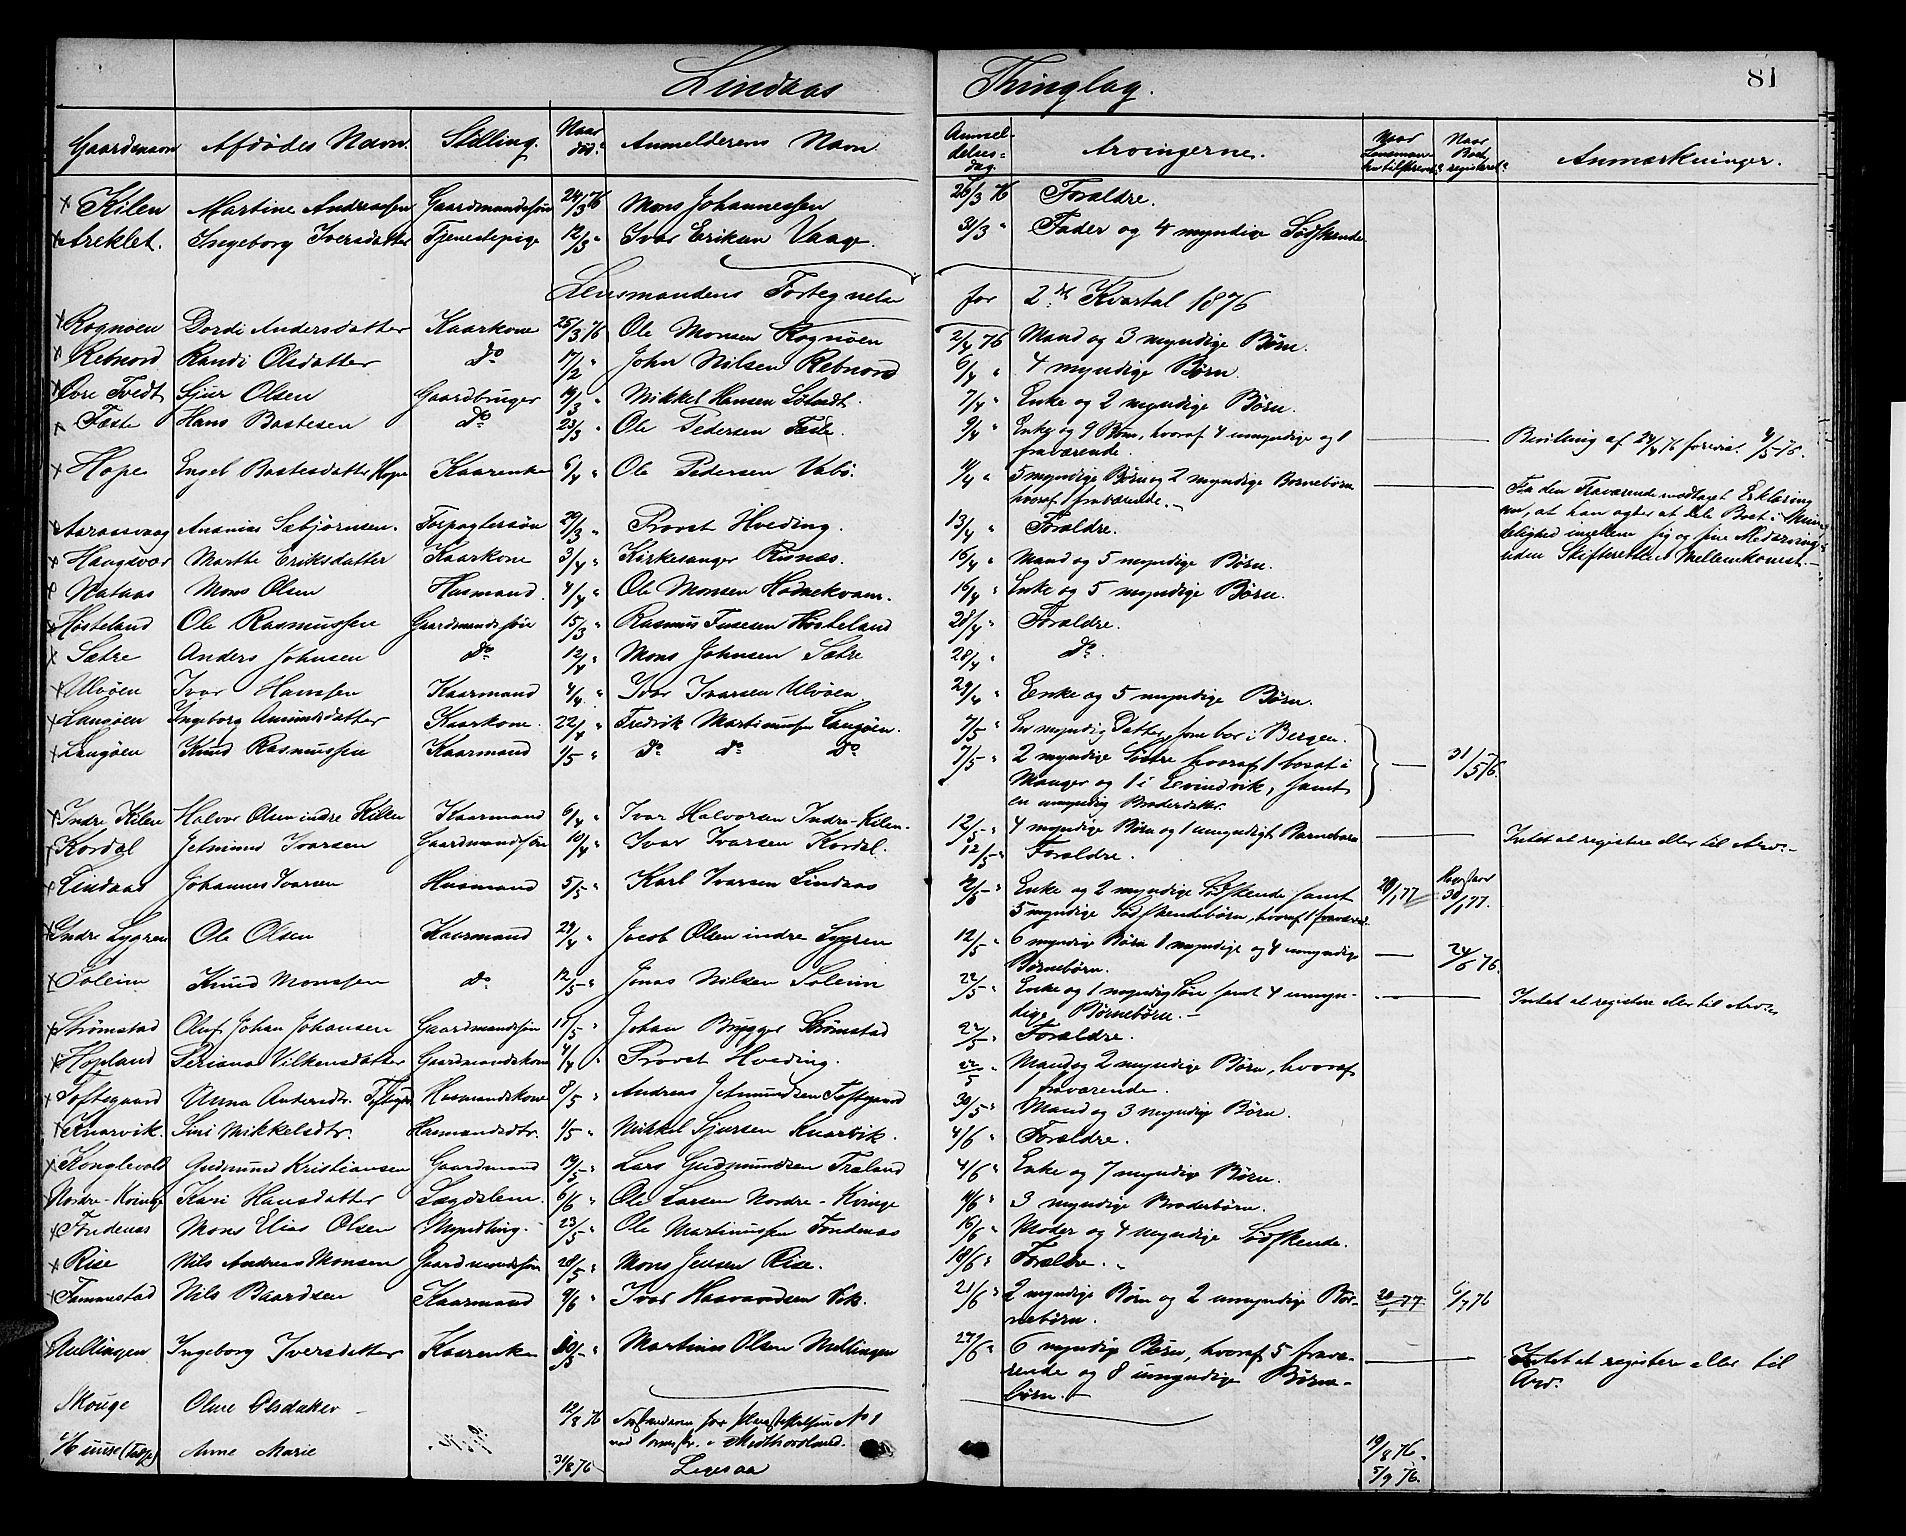 Lindaas Thinglag. 81
Gaardsnavn Afdødes Navn. Stilling. Naar død. Anmelderens Navn Anmeldelsesdag. Arvingerne. Naar Lensmanden tilskrevet Naar Boet registeret Anmærkninger.
x Kilen Martine Andreassen Gaardmandssøn 24/3 76 Mons Johannessen 26/3 76 Forældre.
x Areklet. Ingeborg Iversdatter Tjenestepige 12/3 " Ivar Eriksen Vaage. 31/3 " Fader og 4 myndige Sødskende
Lensmandens Fortegnelse for 2det Kvartal 1876
x Rognøen Dordi Andersdatter Kaarkone 25/3 76 Ole Monsen Rognøen 2/4 76 Mand og 3 myndige Børn.
x Rebnord Randi Olsdatter do 17/2 " John Nilsen Rebnord 6/4 " 4 myndige Børn.
x Øvre Tvedt Sjur Olsen Gaardbruger 19/3 " Mikkel Hansen 7/4 " Enke og 2 myndige Børn.
x Fæste Hans Bastesen do 23/3 " Ole Pedersen Feste. 9/4 " Enke og 9 Børn, hvoraf 4 umyndige og 1 fraværende. Bevilling af 24/4 76 forevist 4/5 76.
x Hope Engel Bastesdatter Hope Kaarenke 6/4 " Ole Pedersen Vabø. 11/4 " 5 myndige Børn og 2 myndige Børnebørn hvoraf 1 fraværende.
Fra den Fraværende modtaget Erklæring
om, at han agter at dele Boet i Min-
delighed imellem sig og sine Medarving-
uden Skifterettens Mellemkomst.
x Aaraasvaag Ananias Sæbjørnsen. Forpagtersøn 29/3 " Provst Hveding. 13/4 " Forældre.
x Haugsvær Marthe Eriksdatter Kaarkone 3/4 " Kirkesanger Risnæs. 16/4 " Mand og 5 myndige Børn.
x Nataas Mons Olsen Husmand. 4/4 " Ole Monsen Hodnekvam. 16/4 " Enke og 5 myndige Børn.
x Høsteland Ole Rasmussen Gaardmandssøn 15/3 " Rasmus Høsteland 28/4 " Forældre.
x Sætre Anders Johnsen do 12/4 " Mons Johnsen Sætre 28/4 " do.
x Ulvøen Ivar Hanssen Kaarmand 4/4 " Ivar Ivarsen Ulvøen 29/4 " Enke og 5 myndige Børn.
x Langøen Ingeborg Amundsdatter Kaarkone. 22/4 " Fredrik Martinussen Langøen. 7/5 " En myndig Datter, som bor i Bergen.
x Langøen Knud Rasmussen Kaarmand 1/5 " do do do 7/5 " 2 myndige Søstre hvoraf 1 bosat i
Manger og 1 i Evindvik, samt
en umyndig Broderdatter. 31/5 76.
x Indre Kilen Halvor Olsen indre Killen Kaarmand 6/4 " Ivar Halvorsen Indre-Kilen. 12/5 " 4 myndige Børn og 1 umyndigt Barnebarn Intet at registere eller til Arv.
x Kordal Jetmund Ivarsen Gaardmandssøn 10/4 " Ivar Ivarsen Kordal. 12/5 " Forældre.
x Lindaas Johannes Ivarsen Husmand 5/5 " Karl Ivarsen Lindaas 12/5 " Enke og 2 myndige Sødskende samt
5 myndige Sødskendebørn, hvoraf 1 fraværende. 20/1 77. 30/1 77.
x Indre Lygren Ole Olsen Kaarmand 29/4 " Jacob Olsen indre Lygren 12/5 " 6 myndige Børn 1 myndigt og 4 umyndige
Børnebørn. 24/6 76.
x Soleim Knud Monssen do 12/5 " Jonas Nilsen Soleim 22/5 " Enke og 1 myndig Søn samt 4 umyn-
dige Børnebørn. Intet at registere eller til Arv.
x Strømstad Oluf Johan Johansen Gaardmandssøn 11/5 " Johan Brygger Strømstad 22/5 " Forældre.
x Hopland Periana Vilkensdatter Gaardmandskone 4/4 " Provst Hveding. 22/5 " Mand og 2 myndige Børn, hvoraf
1 fraværende.
x Toftegaard Anna Andersdtr. Husmandskone 8/5 " Andreas Jetmundsen Toftegaard 30/5 " Mand og 3 myndige Børn.
x Knarvik. Siri Mikkelsdtr. Husmandsdtr. 1/5 " Mikkel Sjursen Knarvik. 4/6 " Forældre.
x Konglevold Gudmund Kristiansen Gaardmand 19/5 " Lars Gudmundsen Fraland 4/6 " Enke og 7 myndige Børn.
Nordre-Kvinge Kari Hansdatter Lægdslem. 6/6 " Ole Larsen Nordre-Kvinge 11/6 " 3 myndige Broderbørn.
x Fondenæs Mons Elias Olsen Myndling. 23/5 " Ole Martinussen Fondenæs 16/6 " Moder og 4 myndige Sødskende.
x Rise Nils Andreas Monsen Gaardmandssøn 28/5 " Mons Jensen Rise. 18/6 " Forældre.
x Fammestad Nils Baardsen Kaarmand 9/6 " Ivar Haavardsen Vik. 21/6 " 2 myndige Børn og 2 umyndige Bør-
nebørn. 20/1 77 6/7 76
x Mullingen Ingeborg Iversdatter Kaarenke 30/3 " Martinus Olsen Mullingen 27/6 " 6 myndige Børn, hvoraf 5 fravæ-
rende og 8 umyndige Børne-
børn. Intet at registere eller til
Arv.
Skouge Oline Olsdatter 12/8 76 No 1
Midthordland. 19/8 76.
Anne Marie 31/8 76 5/9 76.